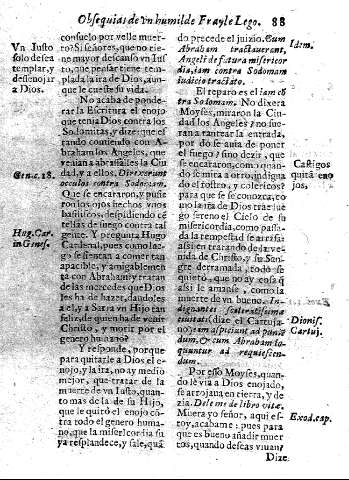 Obsequias de vn humilde Frayle Lego. 88
Vn Iusto
solo desea
templar, y
desenojar
a Dios.
Gen. c. 18.
Hug. Car.
in Genes.
consuelo por velle muer-
to? Si señores, que no tie-
ne mayor descanso vn Ius-
to, que pensar tiene tem-
plada la ira de Dios, aun-
que le cueste su vida.
No acaba de ponde-
rar la Escritura el enojo
que tenia Dios contra los
Sodomitas, y dize: que el-
tando contendo con A-
braham los Angeles, que
venian a abrasalles la Ciu-
dad, y a ellos, Direxerunt
occulos contra Sodomam.
Que se encararon, y pusie-
ron los ojos hechos vnos
basiliscos, despidiendo cē-
tellas de fuego contra tal
gente. Y pregunta Hugo
Cardenal, pues como lue-
go se sientan a comer tan
apacible, y amigablemen
te con Abraham, y tratan
de las mercedes que Dios
les ha de hazer, dandoles
a el, y a Sarra vn Hijo tan
feliz, de quien ha de venir
Christo, y morir por el
genero humano?
Y responde, porque
para quitarle a Dios el e-
nojo, y la ira, no ay medio
mejor, que tratar de la
muerte de vn Iusto, quan-
to mas de la de su Hijo,
que le quitò el enojo cō-
tra todo el genero huma-
no, que la misericordia su
ya resplandece, y sale, quā
do precede el juizio. Cum
Abraham tractauerant,
Angeli de futura misericor
dia, iam contra Sodomam
iudicio tractato.
El reparo es el iam cō
tra Sodomam. No dixera
Moyses, miraron la Ciu-
dad los Angeles? no fue-
ra na tantear la entrada,
por dō se auia de poner
el fuego? sino dezir, que
se encararon, como quan-
do se mira a otro, indigna
do el rostro, y colericos?
para que se se conozca, co
mo la ira de Dios trae lue
go sereno el Cielo de su
misericordia, como passa-
da la tempestad se arrasa:
assi en tratando de la ve-
nida de Christo, y su San-
gre derramada, todo se
quietò, que no ay cosa q̄
assi le amanse, como la
muerte de vn bueno. In-
dignantes sceleratissima
ciuitatis (dize el Cartuja-
no) eam aspiciunt ad punien
dum, & cum Abraham lo-
quuntur ad requiescen-
dum.
Por esso Moyses, quan-
do le vìa a Dios enojado,
se arrojaua en tierra, y de
zia. Dele me de libro vitæ.
Muera yo señor, aqui es-
toy, acabame: pues para
que es bueno añadir muer
tos, quando deseas viuan?
Dize.
Idem.
Castigos
quità eno
jos.
Dionis.
Cartuj.
Exod. cap.